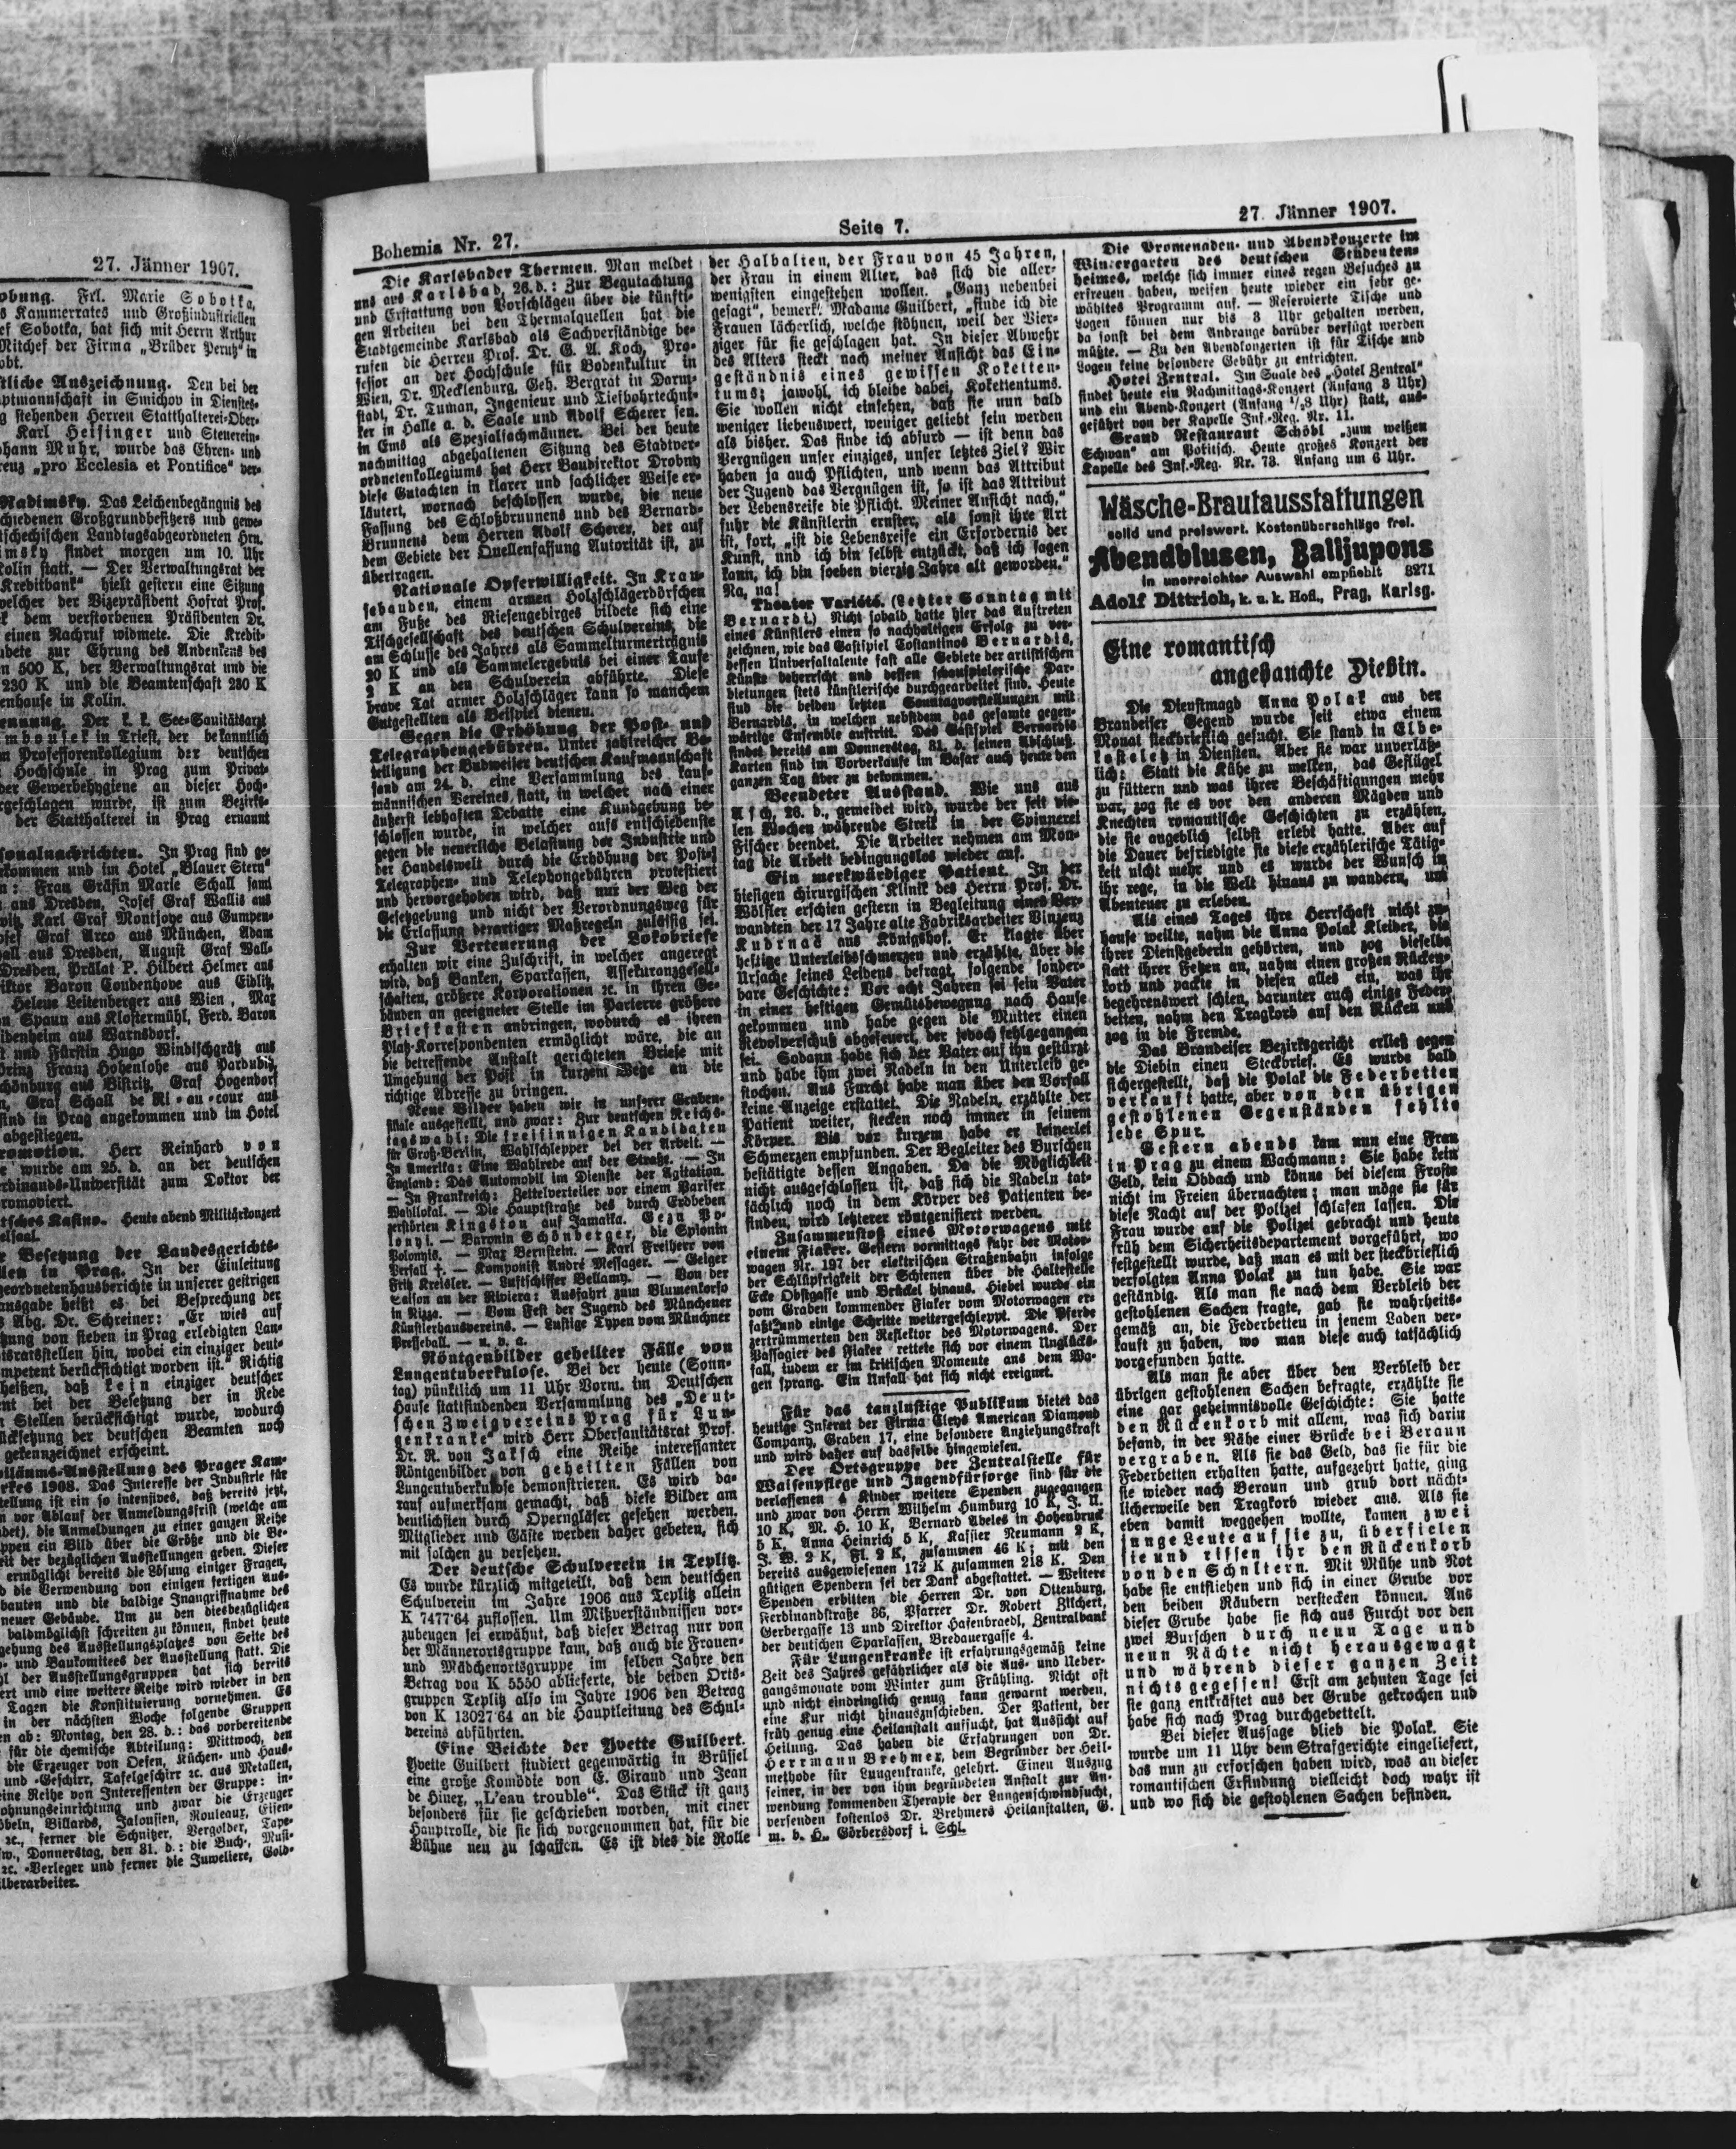 27. Jänner 1907.
obung. Frl. Marie Sobotka,
s Kammerrates und Großindustriellen
ef Sobotka, hat sich mit Herrn Arthur
Mitchef der Firma „Brüder Perutz" in
obt.
tliche Auszeichnung. Den bei der
uptmannschaft in Smichov in Dienstes-
g stehenden Herren Statthalterei-Ober-
Karl Heisinger und Steuerein-
ohann Muhr, wurde das Ehren- und
reuz „pro Ecclesia et Pontifice" ver-
Radimsky. Das Leichenbegängnis des
chiedenen Großgrundbesitzers und gewe-
tschechischen Landtagsabgeordneten Hrn.
imsky findet morgen um 10. Uhr
Kolin statt. — Der Verwaltungsrat der
Kreditbank" hielt gestern eine Sitzung
welcher der Vizepräsident Hofrat Prof.
k dem verstorbenen Präsidenten Dr.
einen Nachruf widmete. Die Kredit-
ndete zur Ehrung des Andenkens des
n 500 K, der Verwaltungsrat und die
230 K und die Beamtenschaft 230 K
enhause in Kolin.
ennung. Der k. k. See-Sanitätsarzt
mbousek in Triest, der bekanntlich
m Professorenkollegium der deutschen
Hochschule in Prag zum Privat-
der Gewerbehygiene an dieser Hoch-
rgeschlagen wurde, ist zum Bezirks-
der Statthalterei in Prag ernannt
sonalnachrichten. In Prag sind ge-
kommen und im Hotel „Blauer Stern"
n: Frau Gräfin Marie Schall samt
aus Dresden, Josef Graf Wallis aus
witz, Karl Graf Montjoye aus Gumpen-
osef Graf Arco aus München, Adam
all aus Dresden, August Graf Wall-
Dresden, Prälat P. Hilbert Helmer aus
iktor Baron Coudenhove aus Eidlitz,
Helene Leitenberger aus Wien, Max
n Spaun aus Klostermühl, Ferd. Baron
idenheim aus Warnsdorf.
t und Fürstin Hugo Windischgrätz aus
Prinz Franz Hohenlohe aus Pardubitz,
chönburg aus Bistritz, Graf Hogendorf
n, Graf Schall de Ri-au-cour aus
sind in Prag angekommen und im Hotel
abgestiegen.
romotion. Herr Reinhard von
e wurde am 25. d. an der deutschen
rdinands-Universität zum Doktor der
romoviert.
tsches Kasino. Heute abend Militärkonzert
elsaal.
r Besetzung der Landesgerichts-
llen in Prag. In der Einleitung
geordnetenhausberichte in unserer gestrigen
ausgabe heißt es bei Besprechung der
s Abg. Dr. Schreiner: „Er wies auf
tzung von sieben in Prag erledigten Lan-
tsratsstellen hin, wobei ein einziger deut-
mpetent berücksichtigt worden ist." Richtig
heißen, daß kein einziger deutscher
ent bei der Besetzung der in Rede
n Stellen berücksichtigt wurde, wodurch
ücksetzung der deutschen Beamten noch
gekennzeichnet erscheint.
iläums-Ausstellung des Prager Kam-
rkes 1908. Das Interesse der Industrie für
tellung ist ein so intensives, daß bereits jetzt,
n vor Ablauf der Anmeldungsfrist (welche am
ndet), die Anmeldungen zu einer ganzen Reihe
ppen ein Bild über die Größe und die Be-
eit der bezüglichen Ausstellungen geben. Dieser
ermöglicht bereits die Lösung einiger Fragen,
d die Verwendung von einigen fertigen Aus-
bauten und die baldige Inangriffnahme des
neuer Gebäude. Um zu den diesbezüglichen
baldmöglichst schreiten zu können, findet heute
gehung des Ausstellungsplatzes von Seite des
- und Baukomitees der Ausstellung statt. Die
hl der Ausstellungsgruppen hat sich bereits
ert und eine weitere Reihe wird wieder in den
Tagen die Konstituierung vornehmen. Es
in der nächsten Woche folgende Gruppen
en ab: Montag, den 28. d.: das vorbereitende
für die chemische Abteilung: Mittwoch, den
die Erzeuger von Oefen, Küchen- und Haus-
und -Geschirr, Tafelgeschirr ꝛc. aus Metallen,
eine Reihe von Interessenten der Gruppe: in-
ohnungseinrichtung und zwar die Erzeuger
öbeln, Billards, Jalousien, Rouleaux, Eisen-
ꝛc., ferner die Schnitzer, Vergolder, Tape-
w., Donnerstag, den 31. d.: die Buch-, Musi-
ꝛc. -Verleger und ferner die Juweliere, Gold-
ilberarbeiter.
Bohemia Nr. 27.
Seite 7.
27. Jänner 1907.
Die Karlsbader Thermen. Man meldet
uns aus Karlsbad, 26. d.: Zur Begutachtung
und Erstattung von Vorschlägen über die künfti-
gen Arbeiten bei den Thermalquellen hat die
Stadtgemeinde Karlsbad als Sachverständige be-
rufen die Herren Prof. Dr. G. A. Koch, Pro-
fessor an der Hochschule für Bodenkultur in
Wien, Dr. Mecklenburg, Geh. Bergrat in Darm-
stadt, Dr. Tuman, Ingenieur und Tiefbohrtechni-
ker in Halle a. d. Saale und Adolf Scherer sen.
in Ems als Spezialfachmänner. Bei der heute
nachmittag abgehaltenen Sitzung des Stadtver-
ordnetenkollegiums hat Herr Baudirektor Drobny
diese Gutachten in klarer und sachlicher Weise er-
läutert, wornach beschlossen wurde, die neue
Fassung des Schloßbrunnens und des Bernard-
Brunnens dem Herren Adolf Scherer, der auf
dem Gebiete der Quellenfassung Autorität ist, zu
übertragen.
Nationale Opferwilligkeit. In Krau-
sebauden, einem armen Holzschlägerdörfchen
am Fuße des Riesengebirges bildete sich eine
Tischgesellschaft des deutschen Schulvereins, die
am Schlusse des Jahres als Sammelturmerträgnis
20 K und als Sammelergebnis bei einer Taufe
2 K an den Schulverein abführte. Diese
brave Tat armer Holzschläger kann so manchem
Gutgestellten als Beispiel dienen.
Gegen die Erhöhung der Post- und
Telegraphengebühren. Unter zahlreicher Be-
teiligung der Budweiser deutschen Kaufmannschaft
fand am 24. d. eine Versammlung des kauf-
männischen Vereines statt, in welcher nach einer
äußerst lebhaften Debatte eine Kundgebung be-
schlossen wurde, in welcher aufs entschiedenste
gegen die neuerliche Belastung der Industrie und
der Handelswelt durch die Erhöhung der Post-,
Telegraphen- und Telephongebühren protestiert
und hervorgehoben wird, daß nur der Weg der
Gesetzgebung und nicht der Verordnungsweg für
die Erlassung derartiger Maßregeln zulässig sei.
Zur Verteuerung der Lokobriefe
erhalten wir eine Zuschrift, in welcher angeregt
wird, daß Banken, Sparkassen, Assekuranzgesell-
schaften, größere Korporationen ꝛc. in ihren Ge-
bänden an geeigneter Stelle im Parterre größere
Briefkasten anbringen, wodurch es ihren
Platz-Korrespondenten ermöglicht wäre, die an
die betreffende Anstalt gerichteten Briefe mit
Umgehung der Post in kurzem Wege an die
richtige Adresse zu bringen.
Neue Bilder haben wir in unserer Graben-
filiale ausgestellt, und zwar: Zur deutschen Reichs-
tagswahl: Die freisinnigen Kandidaten
für Groß-Berlin, Wahlschlepper bei der Arbeit. —
In Amerika: Eine Wahlrede auf der Straße. — In
England: Das Automobil im Dienste der Agitation.
— In Frankreich: Zettelverteiler vor einem Pariser
Wahllokal. — Die Hauptstraße des durch Erdbeben
zerstörten Kingston auf Jamaika. Geza Po-
lonyi. — Baronin Schönberger, die Spionin
Polonyis. — Max Bernstein. — Karl Freiherr von
Perfall †. — Komponist André Messager. — Geiger
Fritz Kreisler. — Luftschiffer Bellamy. — Von der
Saison an der Riviera: Ausfahrt zum Blumenkorso
in Nizza. — Vom Fest der Jugend des Münchener
Künstlerhausvereins. — Lustige Typen vom Münchner
Presseball. — u. v. a.
Röntgenbilder geheilter Fälle von
Lungentuberkulose. Bei der heute (Sonn-
tag) pünktlich um 11 Uhr Vorm. im Deutschen
Hause stattfindenden Versammlung des „Deut-
schen Zweigvereins Prag für Lun-
genkranke" wird Herr Obersanitätsrat Prof.
Dr. R. von Jaksch eine Reihe interessanter
Röntgenbilder von geheilten Fällen von
Lungentuberkulose demonstrieren. Es wird da-
rauf aufmerksam gemacht, daß diese Bilder am
deutlichsten durch Operngläser gesehen werden.
Mitglieder und Gäste werden daher gebeten, sich
mit solchen zu versehen.
Der deutsche Schulverein in Teplitz.
Es wurde kürzlich mitgeteilt, daß dem deutschen
Schulverein im Jahre 1906 aus Teplitz allein
K 7477·64 zuflossen. Um Mißverständnissen vor-
zubeugen sei erwähnt, daß dieser Betrag nur von
der Männerortsgruppe kam, daß auch die Frauen-
und Mädchenortsgruppe im selben Jahre den
Betrag von K 5550 ablieferte, die beiden Orts-
gruppen Teplitz also im Jahre 1906 den Betrag
von K 13027·64 an die Hauptleitung des Schul-
vereins abführten.
Eine Beichte der Yvette Guilbert.
Yvette Guilbert studiert gegenwärtig in Brüssel
eine große Komödie von E. Giraud und Jean
de Hiner, „L'eau trouble". Das Stück ist ganz
besonders für sie geschrieben worden, mit einer
Hauptrolle, die sie sich vorgenommen hat, für die
Bühne neu zu schaffen. Es ist dies die Rolle
der Halbalten, der Frau von 45 Jahren,
der Frau in einem Alter, das sich die aller-
wenigsten eingestehen wollen. „Ganz nebenbei
gesagt", bemerkt Madame Guilbert, „finde ich die
Frauen lächerlich, welche stöhnen, weil der Vier-
ziger für sie geschlagen hat. In dieser Abwehr
des Alters steckt nach meiner Ansicht das Ein-
geständnis eines gewissen Koketten-
tums; jawohl, ich bleibe dabei, Kokettentums.
Sie wollen nicht einsehen, daß sie nun bald
weniger liebenswert, weniger geliebt sein werden
als bisher. Das finde ich absurd — ist denn das
Vergnügen unser einziges, unser letztes Ziel? Wir
haben ja auch Pflichten, und wenn das Attribut
der Jugend das Vergnügen ist, so ist das Attribut
der Lebensreife die Pflicht. Meiner Ansicht nach,"
fuhr die Künstlerin ernster, als sonst ihre Art
ist, fort, „ist die Lebensreife ein Erfordernis der
Kunst, und ich bin selbst entzückt, daß ich sagen
kann, ich bin soeben vierzig Jahre alt geworden."
Na, na!
Theater Variété. (Letzter Sonntag mit
Bernardi.) Nicht sobald hatte hier das Auftreten
eines Künstlers einen so nachhaltigen Erfolg zu ver-
zeichnen, wie das Gastspiel Costantinos Bernardis,
dessen Universaltalente fast alle Gebiete der artistischen
Künste beherrscht und dessen schauspielerische Dar-
bietungen stets künstlerische durchgearbeitet sind. Heute
sind die beiden letzten Sonntagvorstellungen mit
Bernardis, in welchen nebstdem das gesamte gegen-
wärtige Ensemble auftritt. Das Gastspiel Bernardis
findet bereits am Donnerstag, 31. d. seinen Abschluß.
Karten sind im Vorverkaufe im Basar auch heute den
ganzen Tag über zu bekommen.
Beendeter Ausstand. Wie uns aus
Asch, 26. d., gemeldet wird, wurde der seit vie-
len Wochen währende Streik in der Spinnerei
Fischer beendet. Die Arbeiter nehmen am Mon-
tag die Arbeit bedingungslos wieder auf.
Ein merkwürdiger Patient. In der
hiesigen chirurgischen Klinik des Herrn Prof. Dr.
Wölfler erschien gestern in Begleitung eines Ver-
wandten der 17 Jahre alte Fabriksarbeiter Vinzenz
Kudrnač aus Königshof. Er klagte über
heftige Unterleibsschmerzen und erzählte, über die
Ursache seines Leidens befragt, folgende sonder-
bare Geschichte: Vor acht Jahren sei sein Vater
in einer heftigen Gemütsbewegung nach Hause
gekommen und habe gegen die Mutter einen
Revolverschuß abgefeuert, der jedoch fehlgegangen
sei. Sodann habe sich der Vater auf ihn gestürzt
und habe ihm zwei Nadeln in den Unterleib ge-
stochen. Aus Furcht habe man über den Vorfall
keine Anzeige erstattet. Die Nadeln, erzählte der
Patient weiter, stecken noch immer in seinem
Körper. Bis vor kurzem habe er keinerlei
Schmerzen empfunden. Der Begleiter des Burschen
bestätigte dessen Angaben. Da die Möglichkeit
nicht ausgeschlossen ist, daß sich die Nadeln tat-
sächlich noch in dem Körper des Patienten be-
finden, wird letzterer röntgenisiert werden.
Zusammenstoß eines Motorwagens mit
einem Fiaker. Gestern vormittags fuhr der Motor-
wagen Nr. 197 der elektrischen Straßenbahn infolge
der Schlüpfrigkeit der Schienen über die Haltestelle
Ecke Obstgasse und Brückel hinaus. Hiebei wurde ein
vom Graben kommender Fiaker vom Motorwagen er-
faßt und einige Schritte weitergeschleppt. Die Pferde
zertrümmerten den Reflektor des Motorwagens. Der
Passagier des Fiaker rettete sich vor einem Unglücks-
fall, indem er im kritischen Momente aus dem Wa-
gen sprang. Ein Unfall hat sich nicht ereignet.
Für das tanzlustige Publikum bietet das
heutige Inserat der Firma Cleys American Diamond
Company, Graben 17, eine besondere Anziehungskraft
und wird daher auf dasselbe hingewiesen.
Der Ortsgruppe der Zentralstelle für
Waisenpflege und Jugendfürsorge sind für die
verlassenen 4 Kinder weitere Spenden zugegangen
und zwar von Herrn Wilhelm Humburg 10 K, J. N.
10 K, M. H. 10 K, Bernard Abeles in Hohenbruck
5 K, Anna Heinrich 5 K, Kassier Neumann 2 K,
J. W. 2 K, Fl. 2 K, zusammen 46 K; mit den
bereits ausgewiesenen 172 K zusammen 218 K. Den
gütigen Spendern sei der Dank abgestattet. — Weitere
Spenden erbitten die Herren Dr. von Ottenburg,
Ferdinandstraße 36, Pfarrer Dr. Robert Zilchert,
Gerbergasse 13 und Direktor Hasenbraedl, Zentralbank
der deutschen Sparkassen, Bredauergasse 4.
Für Lungenkranke ist erfahrungsgemäß keine
Zeit des Jahres gefährlicher als die Aus- und Ueber-
gangsmonate vom Winter zum Frühling. Nicht oft
und nicht eindringlich genug kann gewarnt werden,
eine Kur nicht hinauszuschieben. Der Patient, der
früh genug eine Heilanstalt aufsucht, hat Aussicht auf
Heilung. Das haben die Erfahrungen von Dr.
Herrmann Brehmer, dem Begründer der Heil-
methode für Lungenkranke, gelehrt. Einen Auszug
seiner, in der von ihm begründeten Anstalt zur An-
wendung kommenden Therapie der Lungenschwindsucht,
versenden kostenlos Dr. Brehmers Heilanstalten, G.
m. b. H., Görbersdorf i. Schl.
Die Promenaden- und Abendkonzerte im
Wintergarten des deutschen Studenten-
heimes, welche sich immer eines regen Besuches zu
erfreuen haben, weisen heute wieder ein sehr ge-
wähltes Programm auf. — Reservierte Tische und
Logen können nur bis 8 Uhr gehalten werden,
da sonst bei dem Andrange darüber verfügt werden
müßte. — Zu den Abendkonzerten ist für Tische und
Logen keine besondere Gebühr zu entrichten.
Hotel Zentral. Im Saale des „Hotel Zentral"
findet heute ein Nachmittags-Konzert (Anfang 3 Uhr)
und ein Abend-Konzert (Anfang ½8 Uhr) statt, aus-
geführt von der Kapelle Inf.-Reg. Nr. 11.
Grand Restaurant Schöbl „zum weißen
Schwan" am Poritsch. Heute großes Konzert der
Kapelle des Inf.-Reg. Nr. 73. Anfang um 6 Uhr.
Wäsche-Brautausstattungen
solid und preiswert. Kostenüberschläge frei.
Abendblusen, Balljupons
in unerreichter Auswahl empfiehlt 3271
Adolf Dittrich, k. u. k. Hofl., Prag, Karlsg.
Eine romantisch
angehauchte Diebin.
Die Dienstmagd Anna Polak aus der
Brandeiser Gegend wurde seit etwa einem
Monat steckbrieflich gesucht. Sie stand in Elbe-
kosteletz in Diensten. Aber sie war unverläß-
lich: Statt die Kühe zu melken, das Geflügel
zu füttern und was ihrer Beschäftigungen mehr
war, zog sie es vor den anderen Mägden und
Knechten romantische Geschichten zu erzählen,
die sie angeblich selbst erlebt hatte. Aber auf
die Dauer befriedigte sie diese erzählerische Tätig-
keit nicht mehr und es wurde der Wunsch in
ihr rege, in die Welt hinaus zu wandern, um
Abenteuer zu erleben.
Als eines Tages ihre Herrschaft nicht zu-
hause weilte, nahm die Anna Polak Kleider, die
ihrer Dienstgeberin gehörten, und zog dieselbe
statt ihrer Fetzen an, nahm einen großen Rücken-
korb und packte in diesen alles ein, was ihr
begehrenswert schien, darunter auch einige Feder-
betten, nahm den Tragkorb auf den Rücken und
zog in die Fremde.
Das Brandeiser Bezirksgericht erließ gegen
die Diebin einen Steckbrief. Es wurde bald
sichergestellt, daß die Polak die Federbetten
verkauft hatte, aber von den übrigen
gestohlenen Gegenständen fehlte
jede Spur.
Gestern abends kam nun eine Frau
in Prag zu einem Wachmann: Sie habe kein
Geld, kein Obdach und könne bei diesem Froste
nicht im Freien übernachten; man möge sie für
diese Nacht auf der Polizei schlafen lassen. Die
Frau wurde auf die Polizei gebracht und heute
früh dem Sicherheitsdepartement vorgeführt, wo
festgestellt wurde, daß man es mit der steckbrieflich
verfolgten Anna Polak zu tun habe. Sie war
geständig. Als man sie nach dem Verbleib der
gestohlenen Sachen fragte, gab sie wahrheits-
gemäß an, die Federbetten in jenem Laden ver-
kauft zu haben, wo man diese auch tatsächlich
vorgefunden hatte.
Als man sie aber über den Verbleib der
übrigen gestohlenen Sachen befragte, erzählte sie
eine gar geheimnisvolle Geschichte: Sie hatte
den Rückenkorb mit allem, was sich darin
befand, in der Nähe einer Brücke bei Beraun
vergraben. Als sie das Geld, das sie für die
Federbetten erhalten hatte, aufgezehrt hatte, ging
sie wieder nach Beraun und grub dort nächt-
licherweile den Tragkorb wieder aus. Als sie
eben damit weggehen wollte, kamen zwei
junge Leute auf sie zu, überfielen
sie und rissen ihr den Rückenkorb
von den Schultern. Mit Mühe und Not
habe sie entfliehen und sich in einer Grube vor
den beiden Räubern verstecken können. Aus
dieser Grube habe sie sich aus Furcht vor den
zwei Burschen durch neun Tage und
neun Nächte nicht herausgewagt
und während dieser ganzen Zeit
nichts gegessen! Erst am zehnten Tage sei
sie ganz entkräftet aus der Grube gekrochen und
habe sich nach Prag durchgebettelt.
Bei dieser Aussage blieb die Polak. Sie
wurde um 11 Uhr dem Strafgerichte eingeliefert,
das nun zu erforschen haben wird, was an dieser
romantischen Erfindung vielleicht doch wahr ist
und wo sich die gestohlenen Sachen befinden.